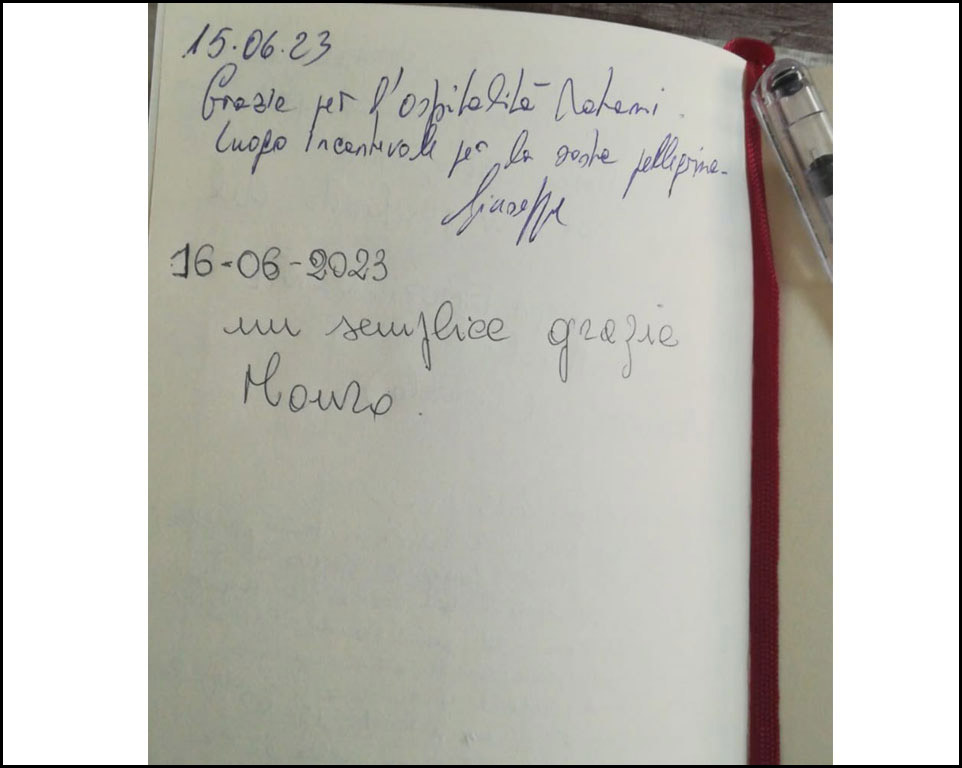 15.06.23
Grazie per l'ospitalità
Luogo Incantevole per la sosta pellegrina.
Giuseppe
16-06-2023
un semplice grazie